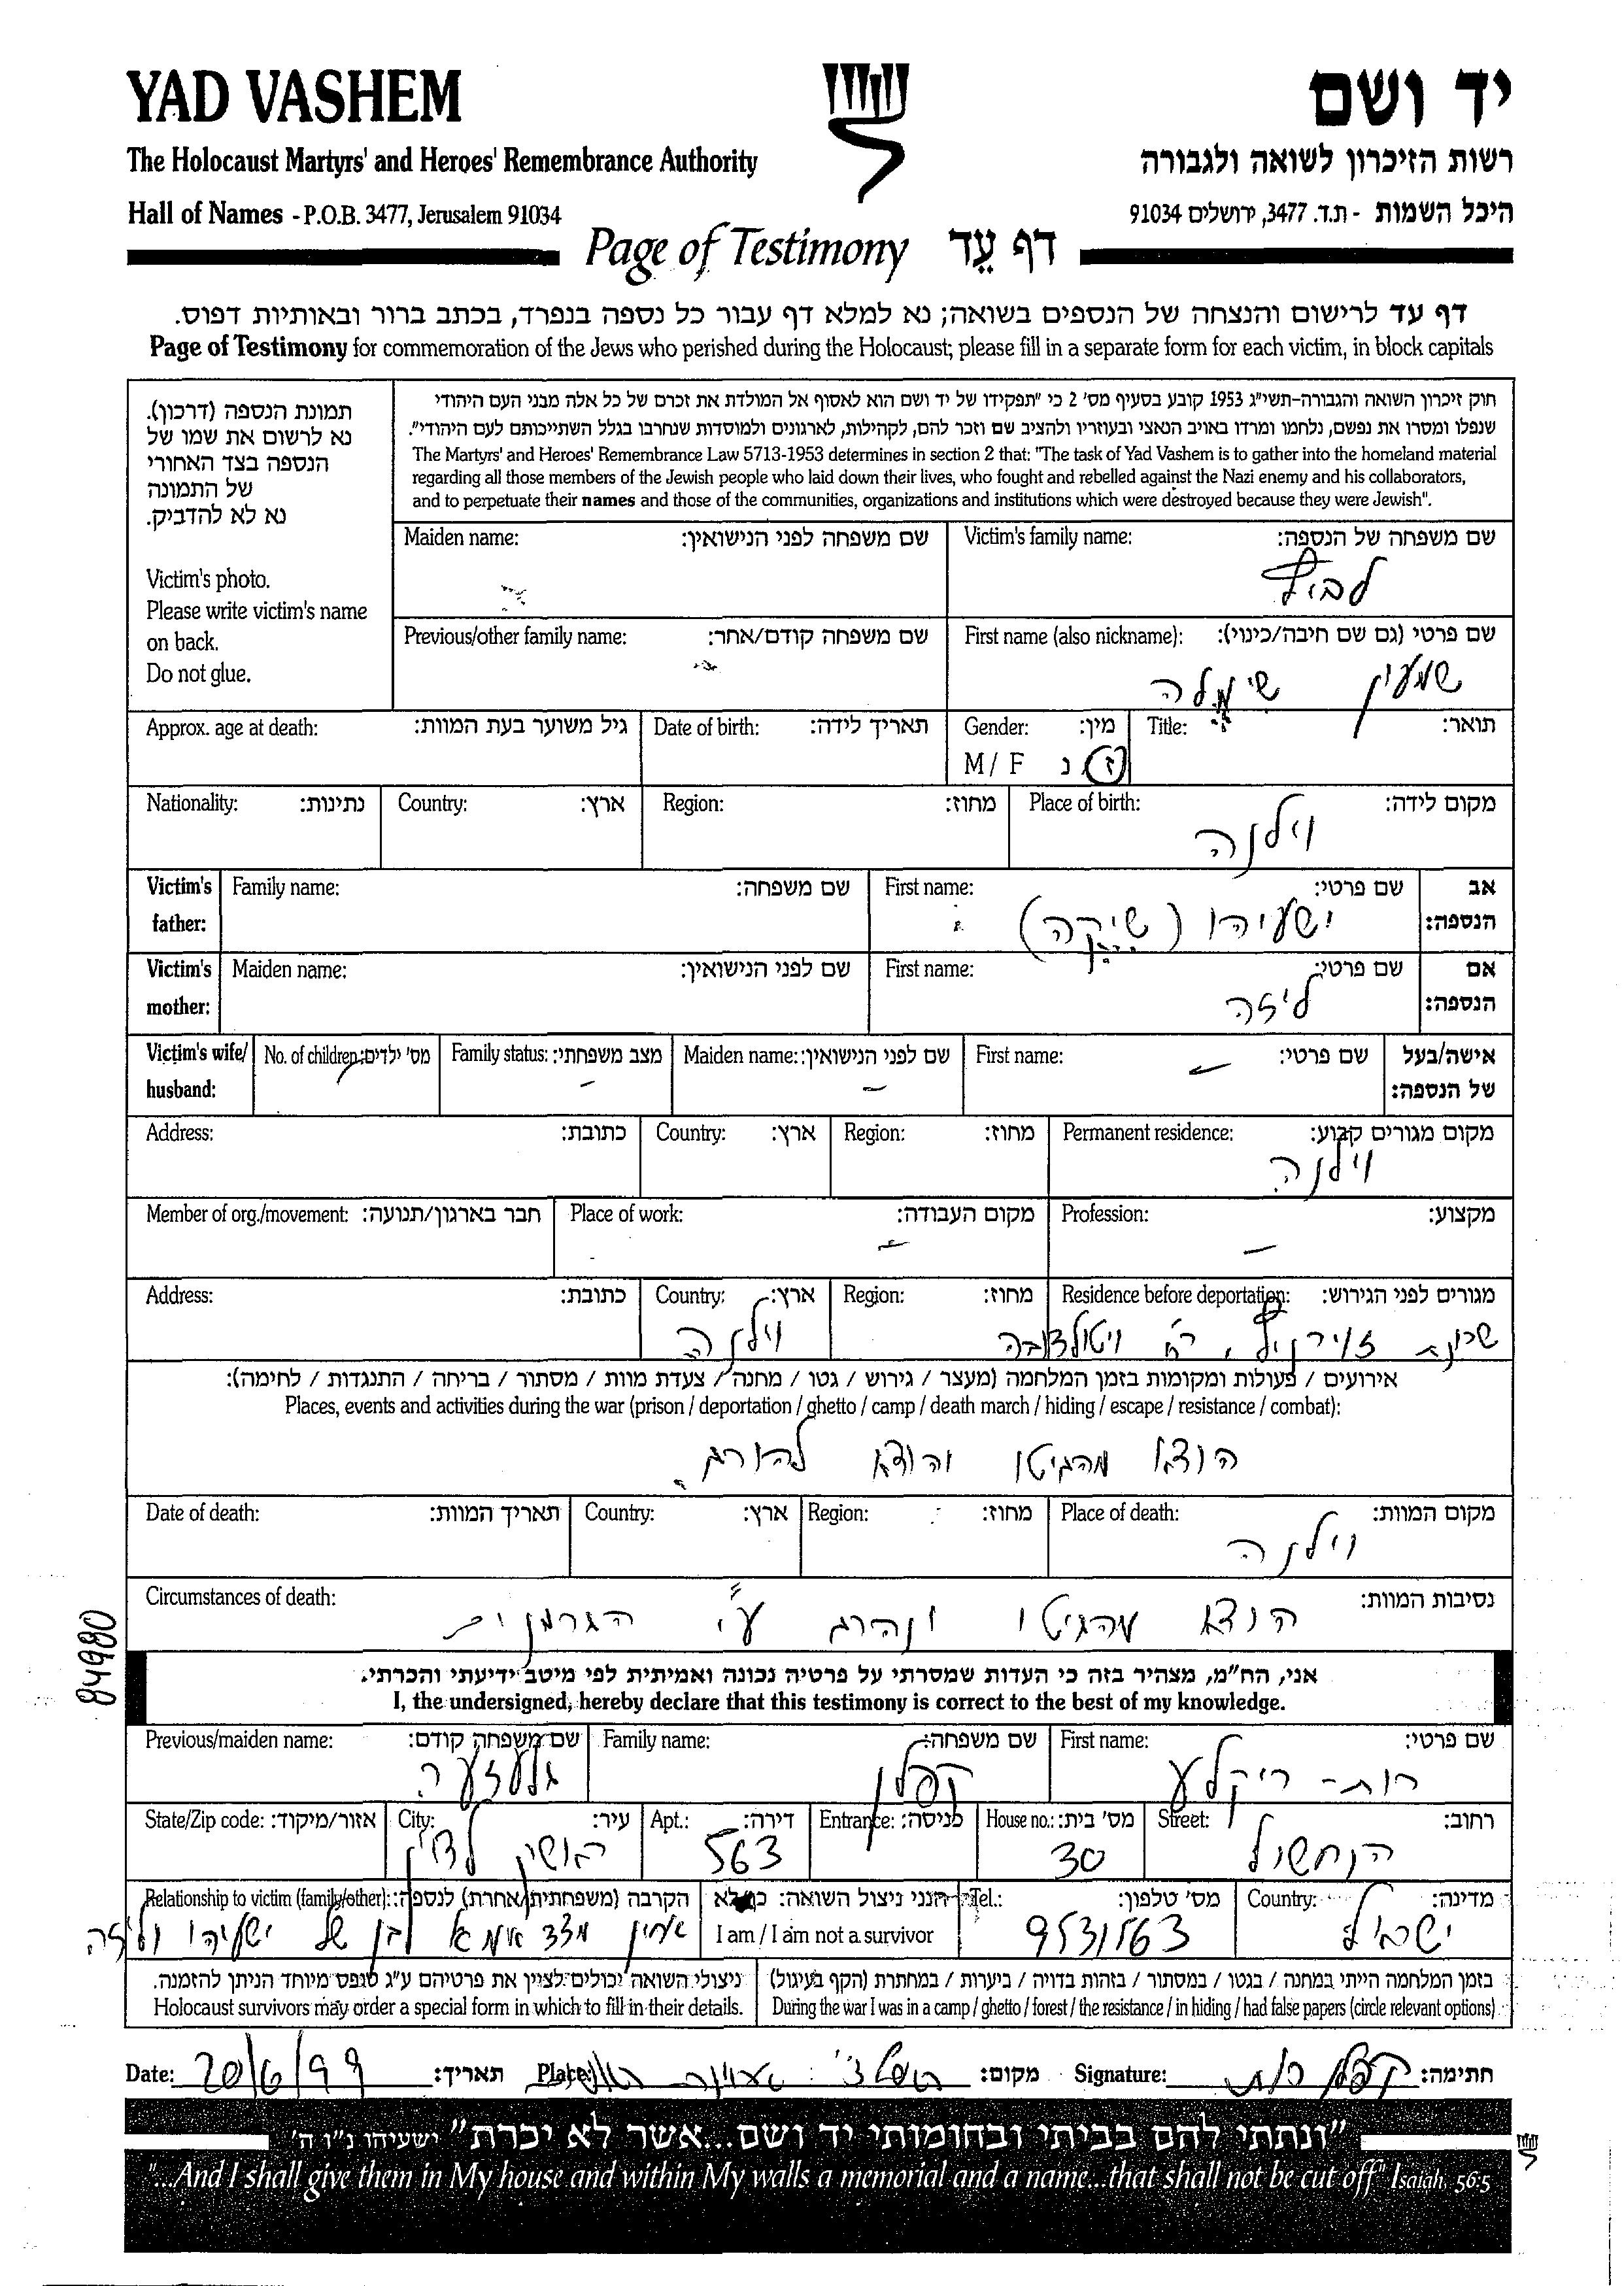 YAD VASHEM
יד ושם
The Holocaust Martyrs' and Heroes' Remembrance Authority
רשות הזיכרון לשואה ולגבורה
Hall of Names - P.O.B. 3477, Jerusalem 91034
היכל השמות - ת.ד. 3477, ירושלים 91034
Page of Testimony דף עֵד
דף עד לרישום והנצחה של הנספים בשואה; נא למלא דף עבור כל נספה בנפרד, בכתב ברור ובאותיות דפוס.
Page of Testimony for commemoration of the Jews who perished during the Holocaust; please fill in a separate form for each victim, in block capitals
תמונת הנספה (דרכון).
נא לרשום את שמו של
הנספה בצד האחורי
של התמונה
נא לא להדביק.
Victim's photo.
Please write victim's name
on back.
Do not glue.
חוק זיכרון השואה והגבורה-תשי"ג 1953 קובע בסעיף מס' 2 כי "תפקידו של יד ושם הוא לאסוף אל המולדת את זכרם של כל אלה מבני העם היהודי
שנפלו ומסרו את נפשם, נלחמו ומרדו באויב הנאצי ובעוזריו ולהציב שם וזכר להם, לקהילות, לארגונים ולמוסדות שנחרבו בגלל השתייכותם לעם היהודי".
The Martyrs' and Heroes' Remembrance Law 5713-1953 determines in section 2 that: "The task of Yad Vashem is to gather into the homeland material
regarding all those members of the Jewish people who laid down their lives, who fought and rebelled against the Nazi enemy and his collaborators,
and to perpetuate their names and those of the communities, organizations and institutions which were destroyed because they were Jewish".
Victim's family name: שם משפחה של הנספה:
Maiden name: שם משפחה לפני הנישואין:
First name (also nickname): שם פרטי (גם שם חיבה/כינוי):
שמעון שימלה
Previous/other family name: שם משפחה קודם/אחר:
Title: תואר:
Gender: מין:
M / F ז / נ
Date of birth: תאריך לידה:
Approx. age at death: גיל משוער בעת המוות:
Place of birth: מקום לידה:
וילנה
Region: מחוז:
Country: ארץ:
Nationality: נתינות:
Victim's father: אב הנספה:
First name: שם פרטי:
ישעיהו (שיקה)
Family name: שם משפחה:
Victim's mother: אם הנספה:
First name: שם פרטי:
ליזה
Maiden name: שם לפני הנישואין:
Victim's wife/ husband: אישה/בעל של הנספה:
First name: שם פרטי:
Maiden name: שם לפני הנישואין:
Family status: מצב משפחתי:
No. of children: מס' ילדים:
Permanent residence: מקום מגורים קבוע:
וילנה
Region: מחוז:
Country: ארץ:
Address: כתובת:
Profession: מקצוע:
Place of work: מקום העבודה:
Member of org./movement: חבר בארגון/תנועה:
Residence before deportation: מגורים לפני הגירוש:
Region: מחוז:
Country: ארץ:
וילנה
Address: כתובת:
אירועים / פעולות ומקומות בזמן המלחמה (מעצר / גירוש / גטו / מחנה / צעדת מוות / מסתור / בריחה / התנגדות / לחימה):
Places, events and activities during the war (prison / deportation / ghetto / camp / death march / hiding / escape / resistance / combat):
הוצא מהגיטו והוצא להורג
Place of death: מקום המוות:
וילנה
Region: מחוז:
Country: ארץ:
Date of death: תאריך המוות:
Circumstances of death: נסיבות המוות:
הוצא מהגיטו ונהרג ע"י הגרמנים
84980
אני, הח"מ, מצהיר בזה כי העדות שמסרתי על פרטיה נכונה ואמיתית לפי מיטב ידיעתי והכרתי.
I, the undersigned, hereby declare that this testimony is correct to the best of my knowledge.
First name: שם פרטי:
רות - ריקלע
Family name: שם משפחה:
קפלן
Previous/maiden name: שם משפחה קודם:
Street: רחוב:
הנחשול
House no.: מס' בית:
30
Entrance: כניסה:
Apt.: דירה:
563
City: עיר:
ראשון לציון
State/Zip code: אזור/מיקוד:
Country: מדינה:
ישראל
Tel.: מס' טלפון:
9531563
הנני ניצול השואה: כן/לא
I am / I am not a survivor
Relationship to victim (family/other): הקרבה (משפחתית/אחרת) לנספה:
אחיין מצד אמא לבן של ישעיהו וליזה
בזמן המלחמה הייתי במחנה / בגטו / במסתור / בזהות בדויה / ביערות / במחתרת (הקף בעיגול)
During the war I was in a camp / ghetto / forest / the resistance / in hiding / had false papers (circle relevant options)
ניצולי השואה יכולים לציין את פרטיהם ע"ג טופס מיוחד הניתן להזמנה.
Holocaust survivors may order a special form in which to fill in their details.
Signature: חתימה: קפלן רות
Place: מקום:
Date: 20/6/99 תאריך:
"ונתתי להם בביתי ובחומותי יד ושם...אשר לא יכרת" ישעיהו נ"ו ה'
"...And I shall give them in My house and within My walls a memorial and a name...that shall not be cut off" Isaiah, 56:5